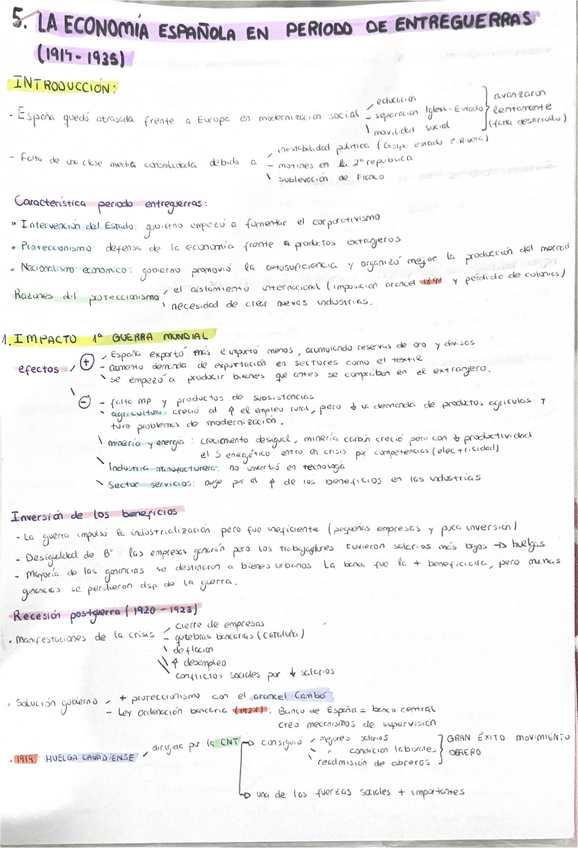 5. LA ECONOMÍA ESPAÑOLA EN PERIODO DE ENTREGUERRAS
(1914-1935)
INTRODUCCIÓN:
- España quedó atrasada frente a Europa en modernización social
educación
separación Iglesia-Estado
movilidad social
avanzaron lentamente (falta desarrollo)
- Falta de una clase media consolidada debido a
inestabilidad política (Golpe estado P. Rivera)
motines en la 2ª republica
sublevación de Franco
Característica periodo entreguerras:
• Intervención del Estado: gobierno empezó a fomentar el corporativismo
• Proteccionismo: defensa de la economía frente a productos extranjeros
• Nacionalismo económico: gobierno promovió la autosuficiencia y organizó mejor la producción del mercad
Razones del proteccionismo
el aislamiento internacional (imposicion arancel 1891 y pérdida de colonias)
necesidad de crear nuevas industrias.
1. IMPACTO 1ª GUERRA MUNDIAL
efectos
+ España exportó más e importó menos, acumulando reservas de oro y divisas
- aumento demanda de exportación en sectores como el textil
se empezó a producir bienes que antes se compraban en el extranjero.
- falta mp y productos de subsistencias
- agricultura: creció al ↑ el empleo rural, pero ↓ la demanda de productos agrícolas y
tuvo problemas de modernización.
minería y energía: crecimiento desigual, minería carbón creció pero con ↓ productividad
el S. energético entró en crisis por competencias (electricidad)
Industria manufacturera: no invertió en tecnología
Sector servicios: auge por el ↑ de los beneficios en las industrias
Inversión de los beneficios
- La guerra impulsó la industrialización pero fue ineficiente (pequeñas empresas y poca inversion)
- Desigualdad de Bº: las empresas ganaron pero los trabajadores tuvieron salarios más bajos → huelgas
- Mayoría de las ganancias se destinaron a bienes urbanos. La banca fue la + beneficiada, pero muchas
ganancias se perdieron dsp de la guerra.
Recesión postguerra (1920-1923)
• Manifestaciones de la crisis
cierre de empresas
- quiebras bancarias (cataluña)
deflación
↑ desempleo
conflictos sociales por ↓ salarios
• Solución gobierno
+ proteccionismo con el arancel Cambó
- Ley ordenación bancaria (1921): Banco de España = banco central
creó mecanismos de supervisión
• 1919 HUELGA CANADIENSE
dirigida por la CNT
→ consiguió
mejores salarios
" condicion laborales
readmisión de obreros
GRAN ÉXITO MOVIMIENTO
OBRERO
→ una de las fuerzas sociales + importantes